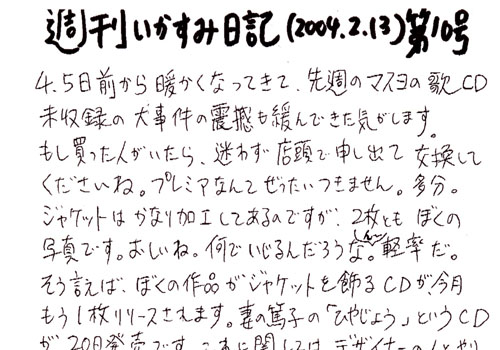 週刊いかすみ日記(2004.2.13)第10号
4、5日前から暖かくなってきて、先週のマスヨの歌CD
未収録の大事件の震撼も緩んできた気がします。
もし買った人がいたら、迷わず店頭で申し出て交換して
くださいね。プレミアなんてぜったいつきません。多分。
ジャケットはかなり加工してあるのですが、2枚ともぼくの
写真です。おしいね。何でいじるんだろうな。軽率だ。
そう言えば、ぼくの作品がジャケットを飾るCDが、今月
もう1枚リリースされます。妻の篤子の「ひやじょう」というCD
が、20日発売です。これに関しては、デザイナーの